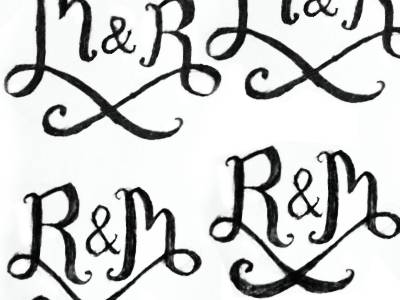 M & R
& R
R & M
R & M